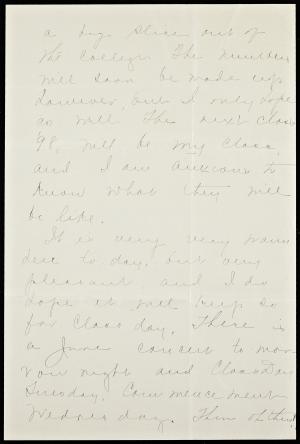 a big slice out of
the College. The number
will soon be made up
however, but I only hope
so will the next class
'98, will be my class,
and I am anxious to
know what they will
be like.
It is very very warm
here to day, but very
pleasant, and I do
hope it will keep so
for Class day. There is
a June concert to mor
row night and Class Day
Tuesday. Commencement
Wednesday. Then